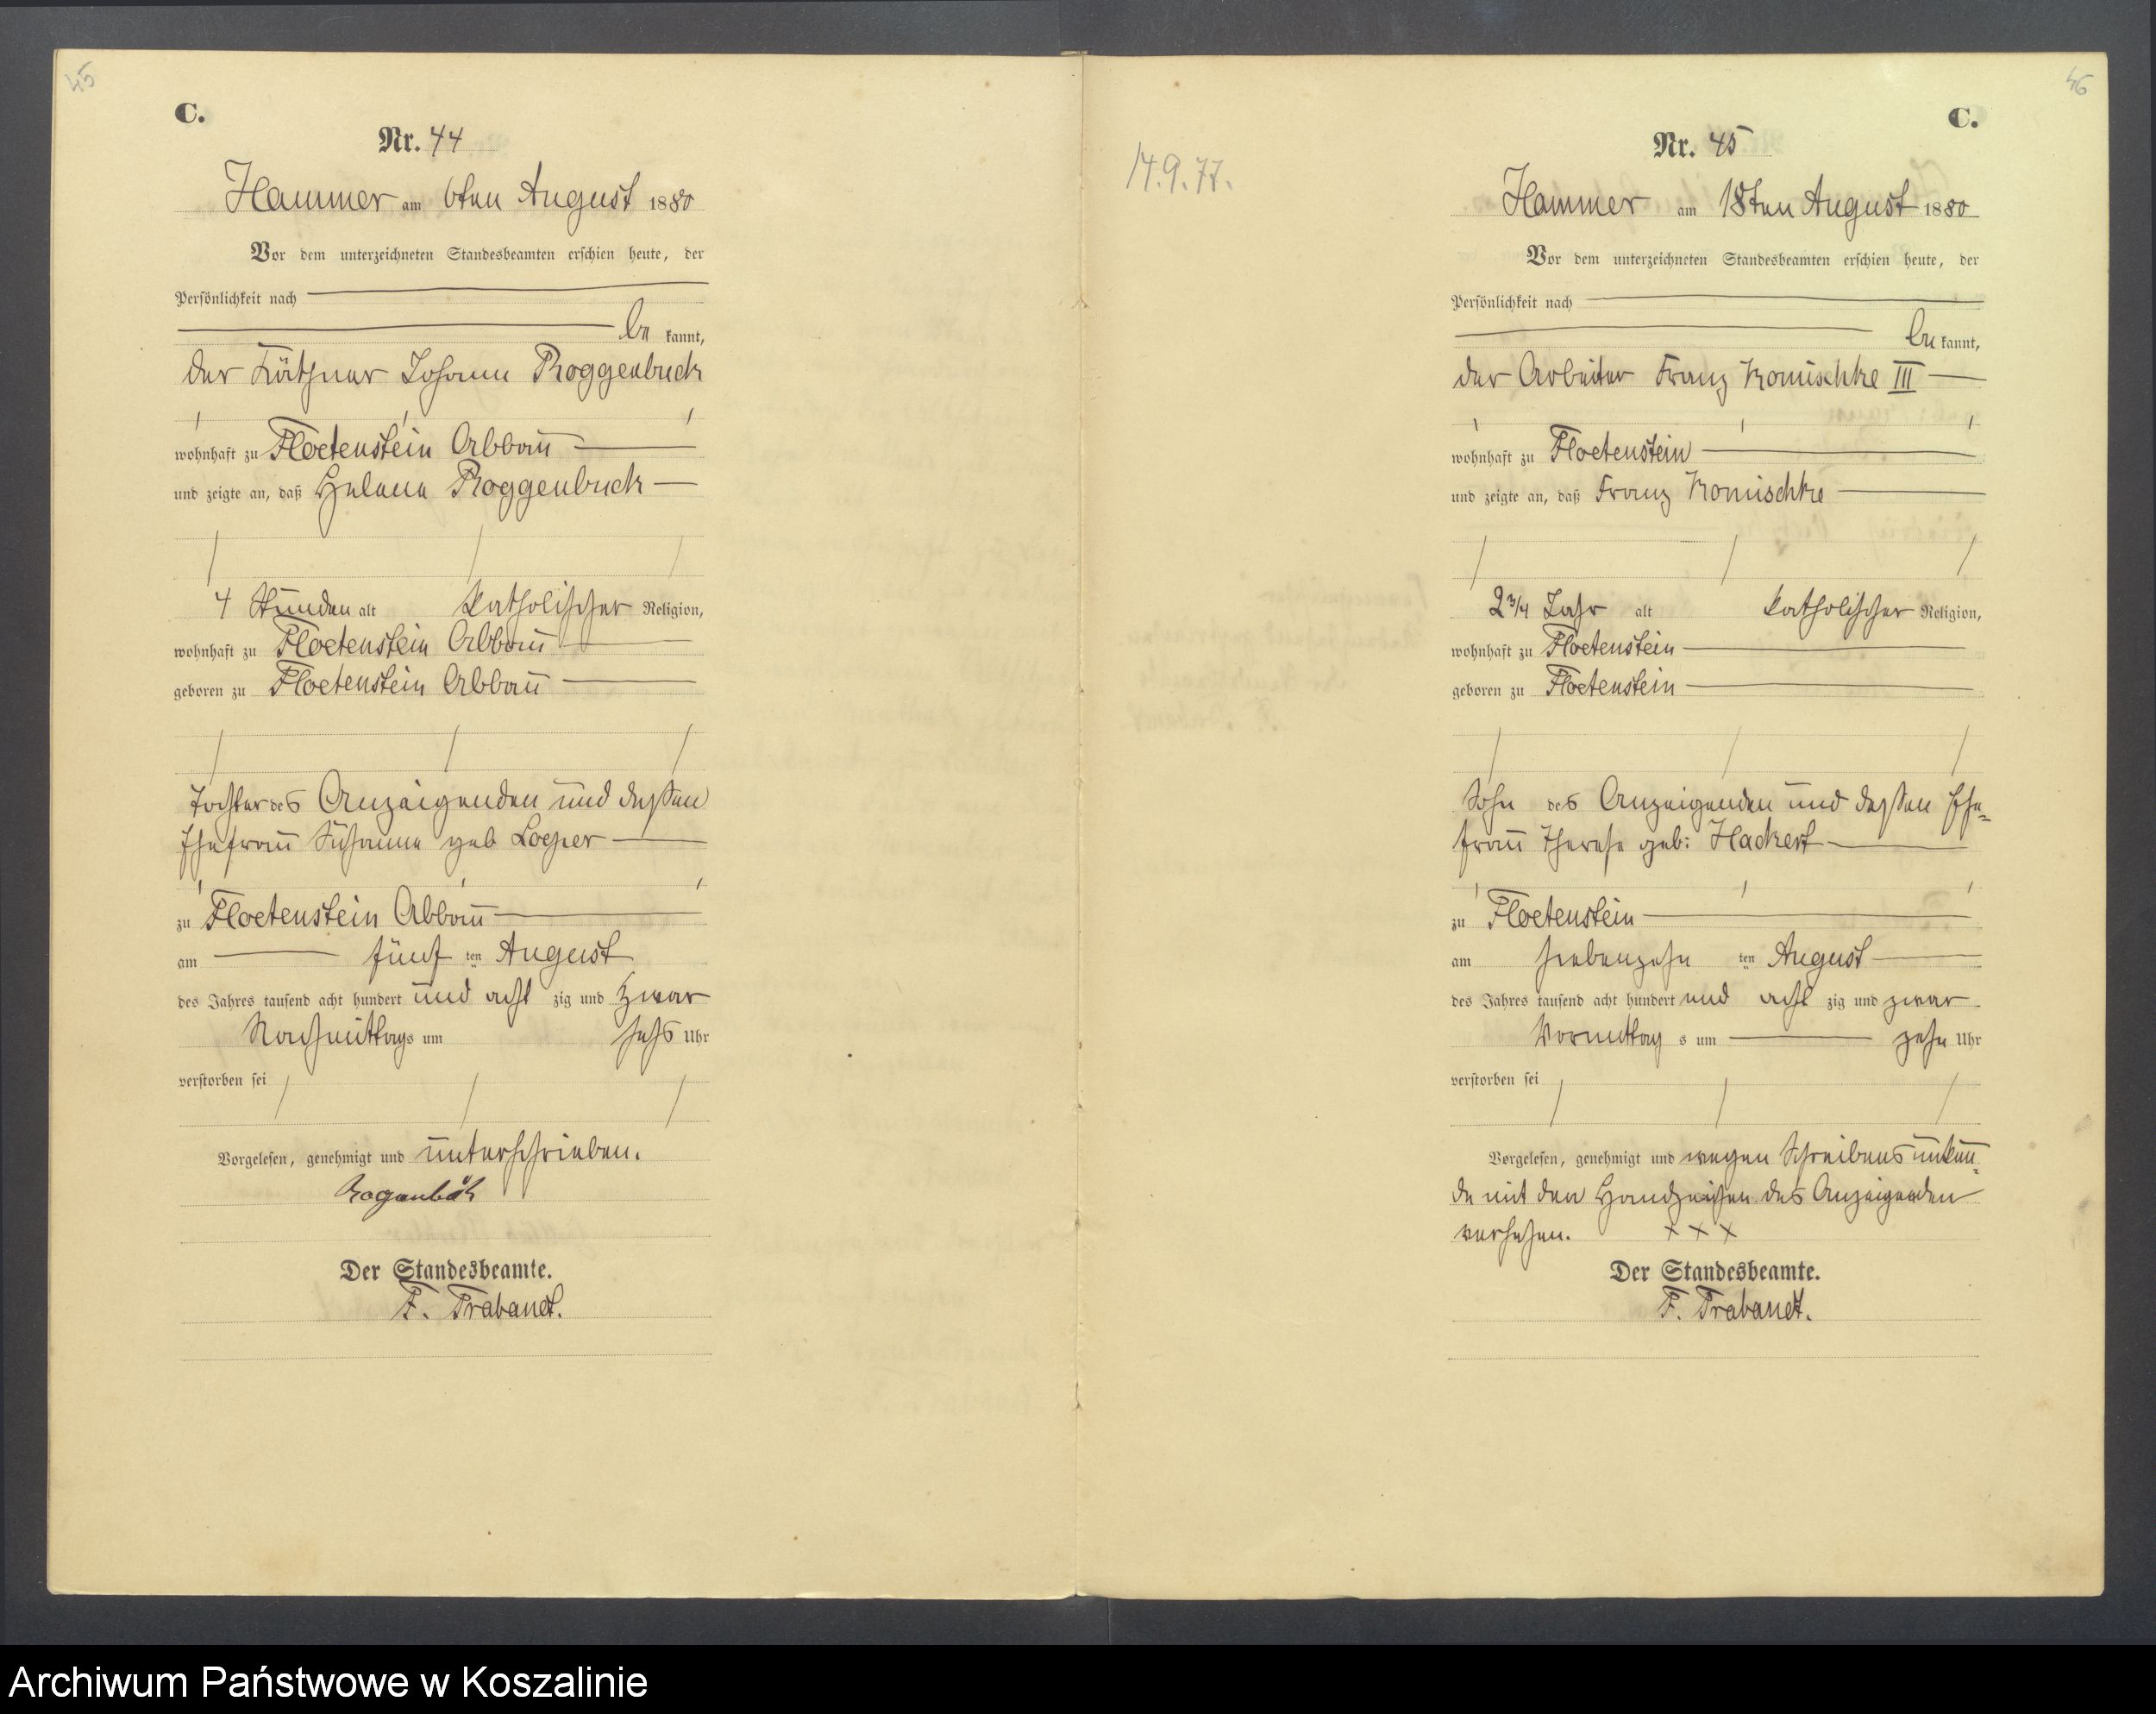 45
C.
Nr. 44
Hammer am 6ten August 1880
Vor dem unterzeichneten Standesbeamten erschien heute, der
Persönlichkeit nach
be kannt,
der Käthner Johann Roggenbuck
wohnhaft zu Floetenstein Abbau
und zeigte an, daß Helene Roggenbuck
4 Stunden alt katholischer Religion,
wohnhaft zu Floetenstein Abbau
geboren zu Floetenstein Abbau
Tochter des Anzeigenden und dessen
Ehefrau Susanna geb Loeper
zu Floetenstein Abbau
am fünf ten August
des Jahres tausend acht hundert und acht zig und zwar
Nachmittags um sechs Uhr
verstorben sei
Vorgelesen, genehmigt und unterschrieben.
Der Standesbeamte.
F. Trabandt.
46
C.
14.9.77.
Nr. 45
Hammer am 18ten August 1880
Vor dem unterzeichneten Standesbeamten erschien heute, der
Persönlichkeit nach
be kannt,
der Arbeiter Franz Komischke III
wohnhaft zu Floetenstein
und zeigte an, daß Franz Komischke
2 3/4 Jahr alt katholischer Religion,
wohnhaft zu Floetenstein
geboren zu Floetenstein
Sohn des Anzeigenden und dessen Ehe=
frau Therese geb: Hackert
zu Floetenstein
am siebenzehn ten August
des Jahres tausend acht hundert und acht zig und zwar
Vormittag s um zehn Uhr
verstorben sei
Vorgelesen, genehmigt und wegen Schreibensunkun=
de mit den Handzeichen des Anzeigenden
versehen. + + +
Der Standesbeamte.
F. Trabandt.
Archiwum Państwowe w Koszalinie